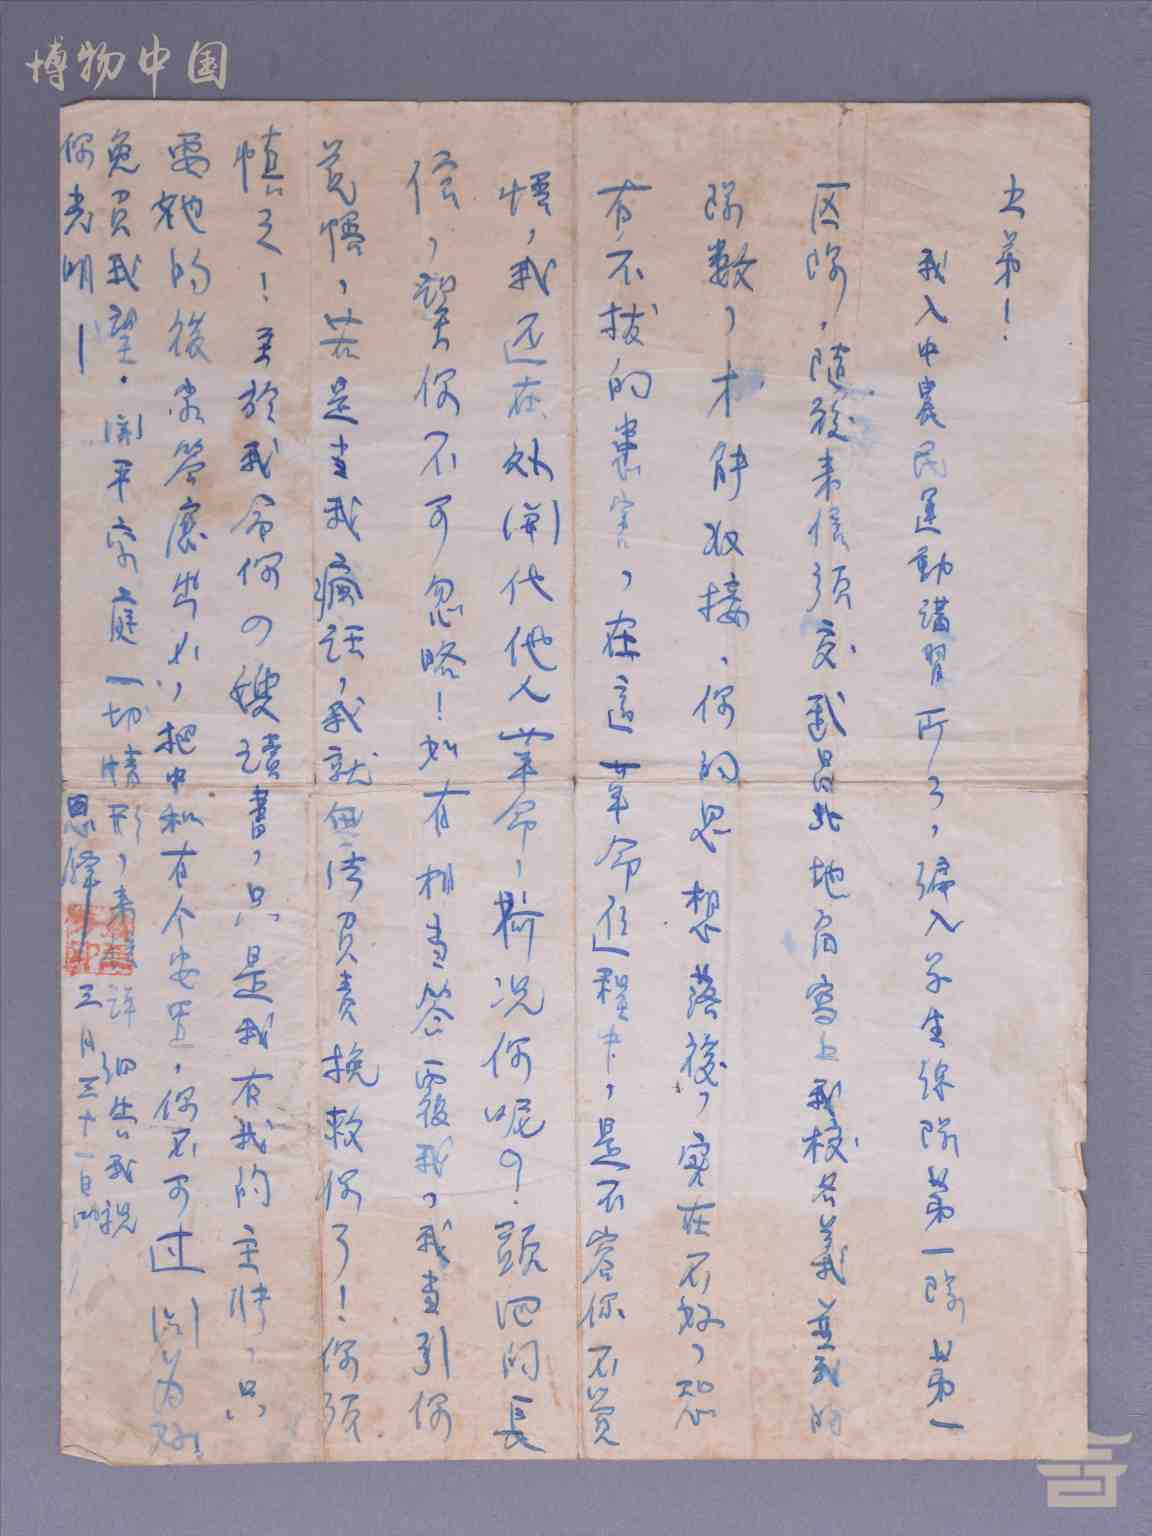 博物中国
士弟！
我入中農民運動講習所了，编入学生总隊第一隊第一
区隊，随後来信须交武昌北地角寫上我校名義並我的
隊数，才能收接，你的思想落後，实在不好，恐
有不拔的患害，在這革命进程中，是不容你不觉
悟，我还在外闹代他人革命，何况你呢？前次的長
信，望你不可忽略！如有相当答覆我，我当引你
觉悟，若是当我疯話，我就無法負责挽救你了！你须
慎之！至於我命你の嫂讀書，只是我有我的主持，只
要她的後家答應出外，把中私有个安置，你不可过闹为好
免負我望．闹平家庭一切情形，来信詳细告我祝
你光明！
恩铎 三月三十一日